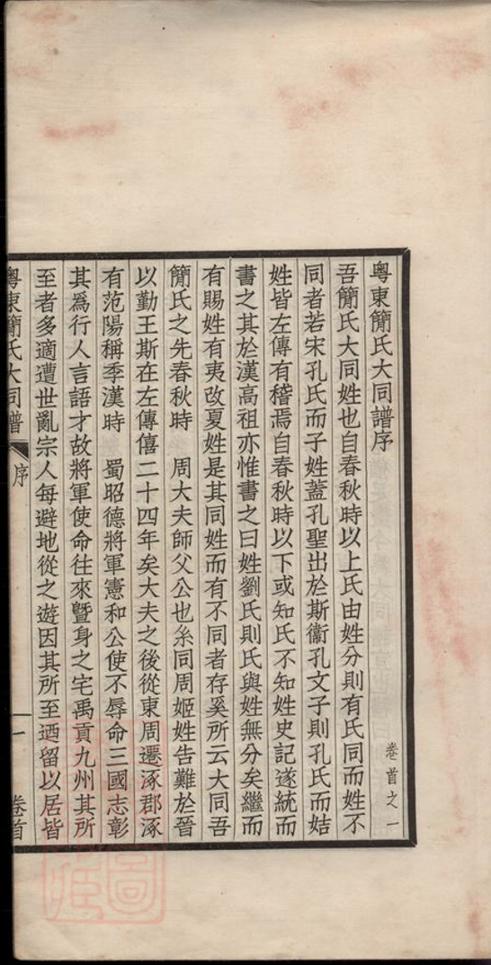 粵東簡氏大同譜序
卷首之一
吾簡氏大同姓也自春秋時以上氏由姓分則有氏同而姓不
同者若宋孔氏而子姓蓋孔聖出於斯衞孔文子則孔氏而姞
姓皆左傳有稽焉自春秋時以下或知氏不知姓史記遂統而
書之其於漢高祖亦惟書之曰姓劉氏則氏與姓無分矣繼而
有賜姓有夷改夏姓是其同姓而有不同者存奚所云大同吾
簡氏之先春秋時 周大夫師父公也系同周姬姓告難於晉
以勤王斯在左傳僖二十四年矣大夫之後從東周遷涿郡涿
有范陽稱季漢時 蜀昭德將軍憲和公使不辱命三國志彰
其爲行人言語才故將軍使命往來曁身之宅禹貢九州其所
至者多適遭世亂宗人每避地從之遊因其所至迺留以居皆
粵東簡氏大同譜
序
一
卷首